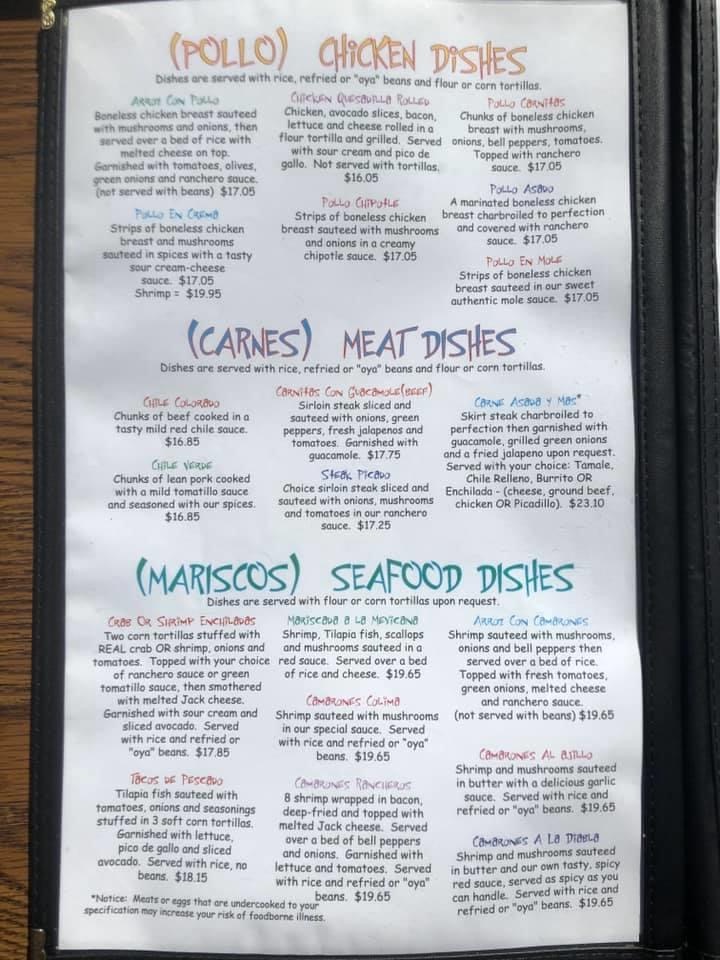 (POLLO) CHICKEN DISHES
Dishes are served with rice, refried or "oya" beans and flour or corn tortillas.
ARROZ CON POLLO
Boneless chicken breast sauteed
with mushrooms and onions, then
served over a bed of rice with
melted cheese on top.
Garnished with tomatoes, olives,
green onions and ranchero sauce.
(not served with beans) $17.05
POLLO EN CREMA
Strips of boneless chicken
breast and mushrooms
sauteed in spices with a tasty
sour cream-cheese
sauce. $17.05
Shrimp = $19.95
CHICKEN QUESADILLA ROLLED
Chicken, avocado slices, bacon,
lettuce and cheese rolled in a
flour tortilla and grilled. Served
with sour cream and pico de
gallo. Not served with tortillas.
$16.05
POLLO CHIPOTLE
Strips of boneless chicken
breast sauteed with mushrooms
and onions in a creamy
chipotle sauce. $17.05
POLLO CARNITAS
Chunks of boneless chicken
breast with mushrooms,
onions, bell peppers, tomatoes.
Topped with ranchero
sauce. $17.05
POLLO ASADO
A marinated boneless chicken
breast charbroiled to perfection
and covered with ranchero
sauce. $17.05
POLLO EN MOLE
Strips of boneless chicken
breast sauteed in our sweet
authentic mole sauce. $17.05
(CARNES) MEAT DISHES
Dishes are served with rice, refried or "oya" beans and flour or corn tortillas.
CHILE COLORADO
Chunks of beef cooked in a
tasty mild red chile sauce.
$16.85
CHILE VERDE
Chunks of lean pork cooked
with a mild tomatillo sauce
and seasoned with our spices.
$16.85
CARNITAS CON GUACAMOLE(BEEF)
Sirloin steak sliced and
sauteed with onions, green
peppers, fresh jalapenos and
tomatoes. Garnished with
guacamole. $17.75
STEAK PICADO
Choice sirloin steak sliced and
sauteed with onions, mushrooms
and tomatoes in our ranchero
sauce. $17.25
CARNE ASADA Y MAS*
Skirt steak charbroiled to
perfection then garnished with
guacamole, grilled green onions
and a fried jalapeno upon request.
Served with your choice: Tamale,
Chile Relleno, Burrito OR
Enchilada - (cheese, ground beef,
chicken OR Picadillo). $23.10
(MARISCOS) SEAFOOD DISHES
Dishes are served with flour or corn tortillas upon request.
CRAB OR SHRIMP ENCHILADAS
Two corn tortillas stuffed with
REAL crab OR shrimp, onions and
tomatoes. Topped with your choice
of ranchero sauce or green
tomatillo sauce, then smothered
with melted Jack cheese.
Garnished with sour cream and
sliced avocado. Served
with rice and refried or
"oya" beans. $17.85
TACOS DE PESCADO
Tilapia fish sauteed with
tomatoes, onions and seasonings
stuffed in 3 soft corn tortillas.
Garnished with lettuce,
pico de gallo and sliced
avocado. Served with rice, no
beans. $18.15
MARISCADA A LA MEXICANA
Shrimp, Tilapia fish, scallops
and mushrooms sauteed in a
red sauce. Served over a bed
of rice and cheese. $19.65
CAMARONES COLIMA
Shrimp sauteed with mushrooms
in our special sauce. Served
with rice and refried or "oya"
beans. $19.65
CAMARONES RANCHEROS
8 shrimp wrapped in bacon,
deep-fried and topped with
melted Jack cheese. Served
over a bed of bell peppers
and onions. Garnished with
lettuce and tomatoes. Served
with rice and refried or "oya"
beans. $19.65
ARROZ CON CAMARONES
Shrimp sauteed with mushrooms,
onions and bell peppers then
served over a bed of rice.
Topped with fresh tomatoes,
green onions, melted cheese
and ranchero sauce.
(not served with beans) $19.65
CAMARONES AL AJILLO
Shrimp and mushrooms sauteed
in butter with a delicious garlic
sauce. Served with rice and
refried or "oya" beans. $19.65
CAMARONES A LA DIABLA
Shrimp and mushrooms sauteed
in butter and our own tasty, spicy
red sauce, served as spicy as you
can handle. Served with rice and
refried or "oya" beans. $19.65
*Notice: Meats or eggs that are undercooked to your
specification may increase your risk of foodborne illness.